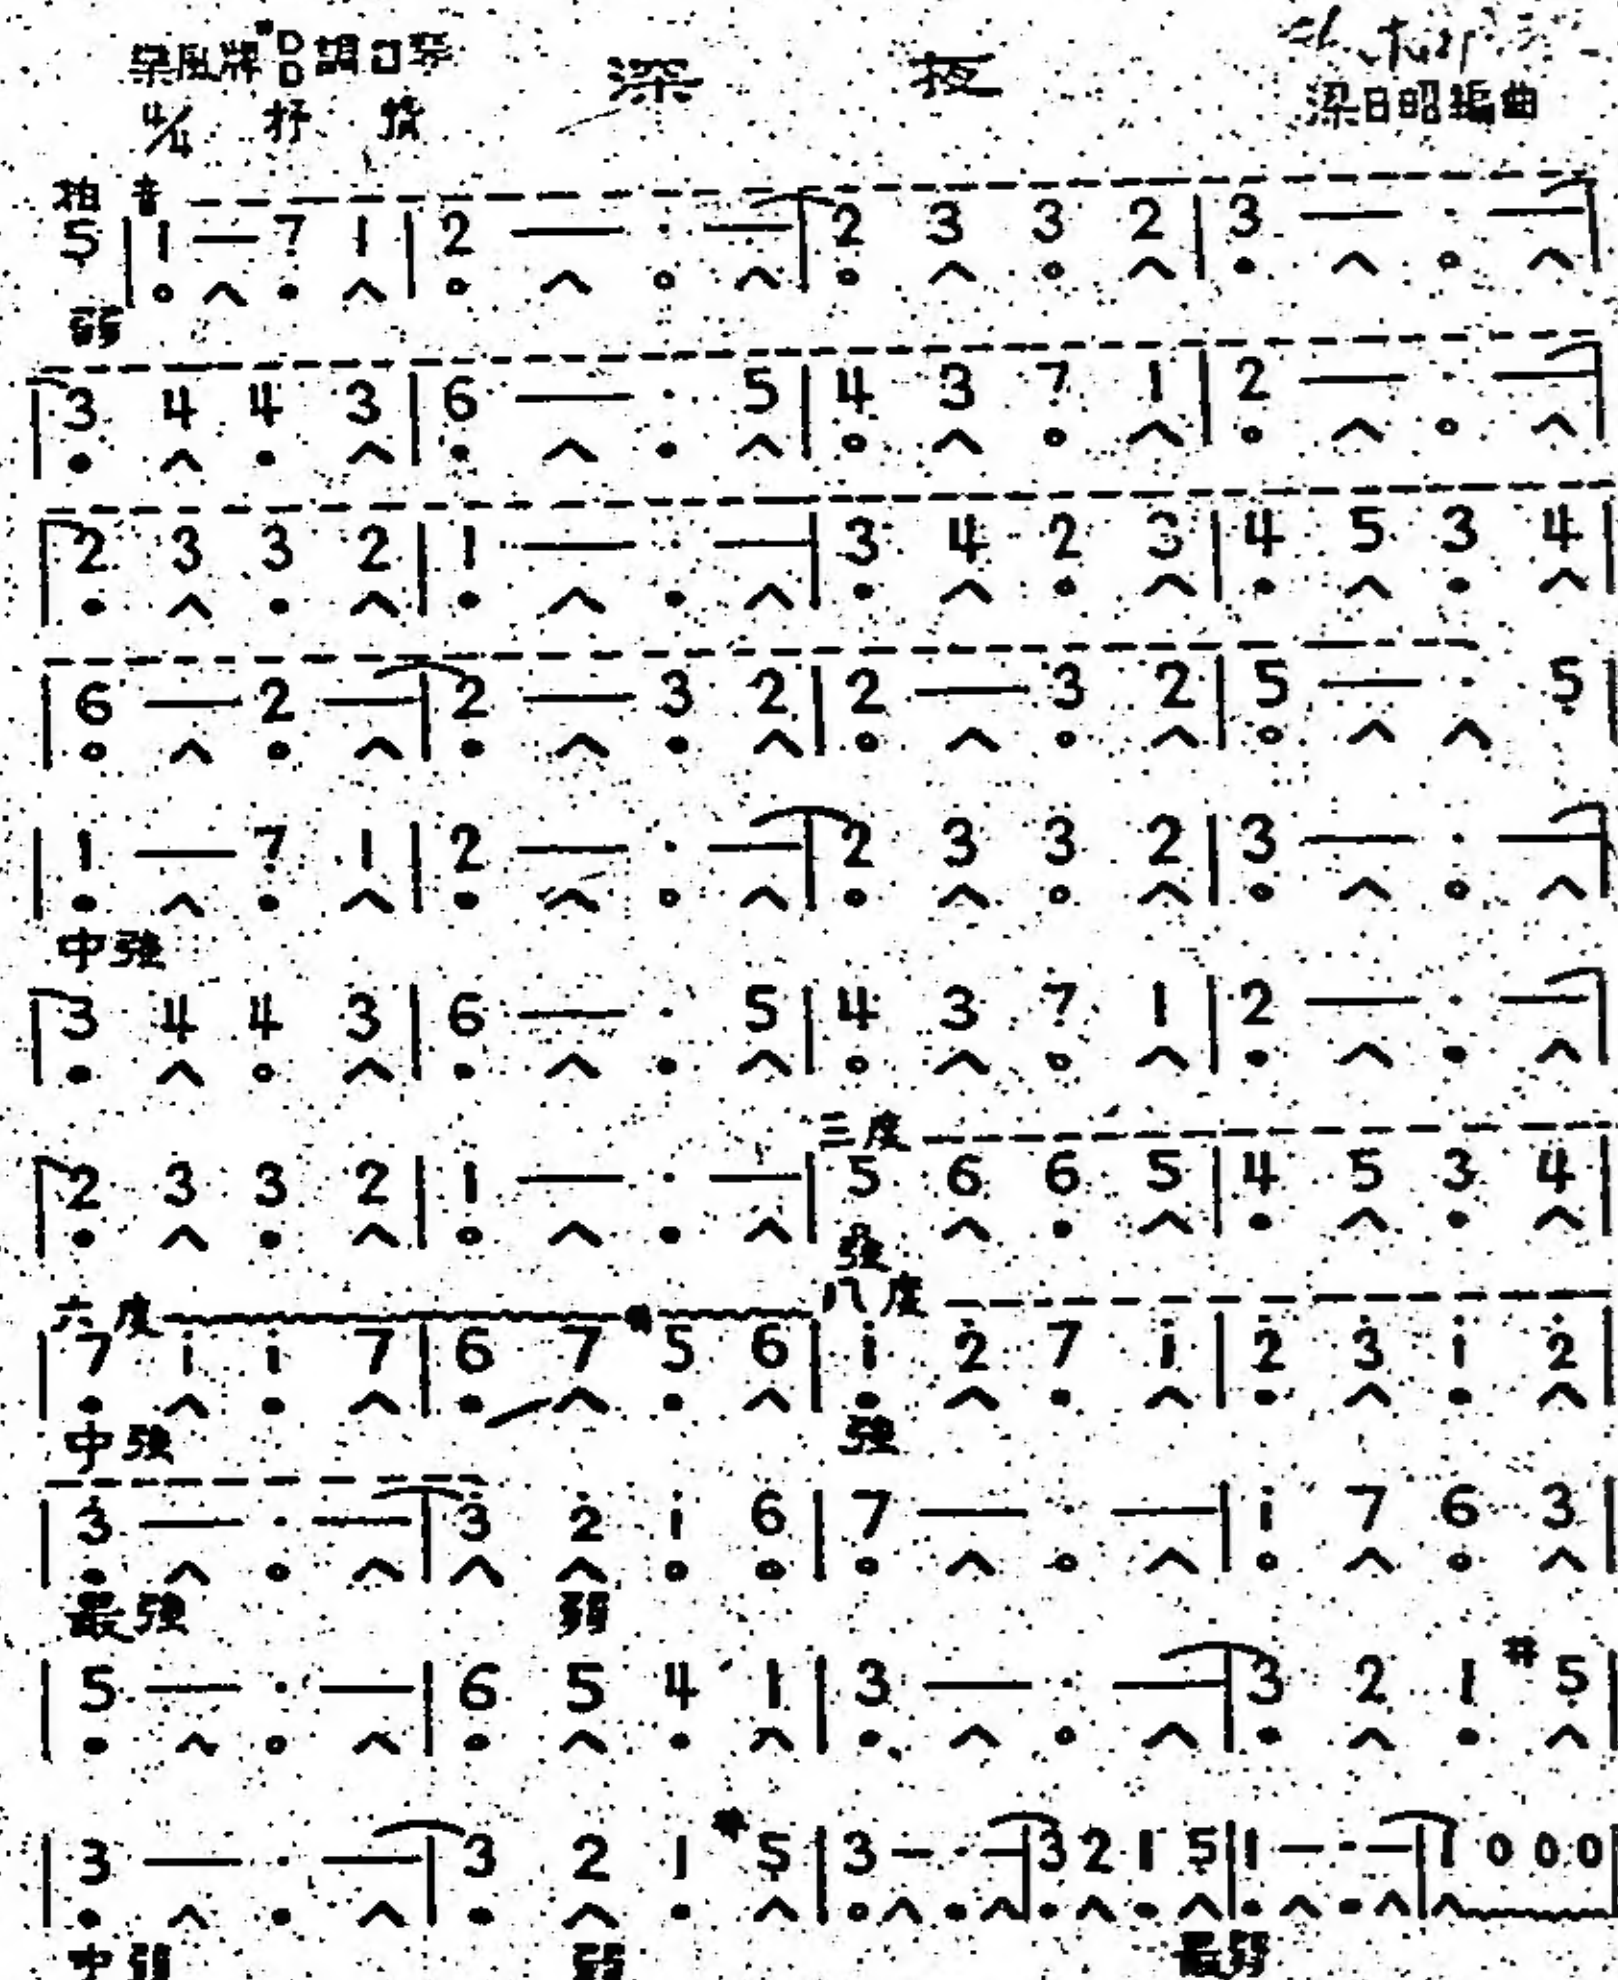 深 夜
4/4 抒 梁日昭編曲
拍 音
5 | 1 — 7 1 | 2 — · — | 2 3 3 2 | 3 — · — |
弱
| 3 4 4 3 | 6 — · 5 | 4 3 7 1 | 2 — · — |
| 2 3 3 2 | 1 — · — | 3 4 2 3 | 4 5 3 4 |
| 6 — 2 — | 2 — 3 2 | 2 — 3 2 | 5 — · 5 |
| 1 — 7 1 | 2 — · — | 2 3 3 2 | 3 — · — |
中強
| 3 4 4 3 | 6 — · 5 | 4 3 7 1 | 2 — · — |
三度
| 2 3 3 2 | 1 — · — | 5 6 6 5 | 4 5 3 4 |
強
六度 八度
| 7 i i 7 | 6 7 5 6 | i 2̇ 7 i | 2̇ 3̇ i 2̇ |
中強 強
| 3̇ — · — | 3̇ 2̇ i 6 | 7 — · — | i 7 6 3 |
最強 弱
| 5 — · — | 6 5 4 1 | 3 — · — | 3 2 1 #5 |
| 3 — · — | 3 2 1 #5 | 3 — · — | 3 2 1 5 | 1 — · — | 1 0 0 0
中弱 弱 最弱